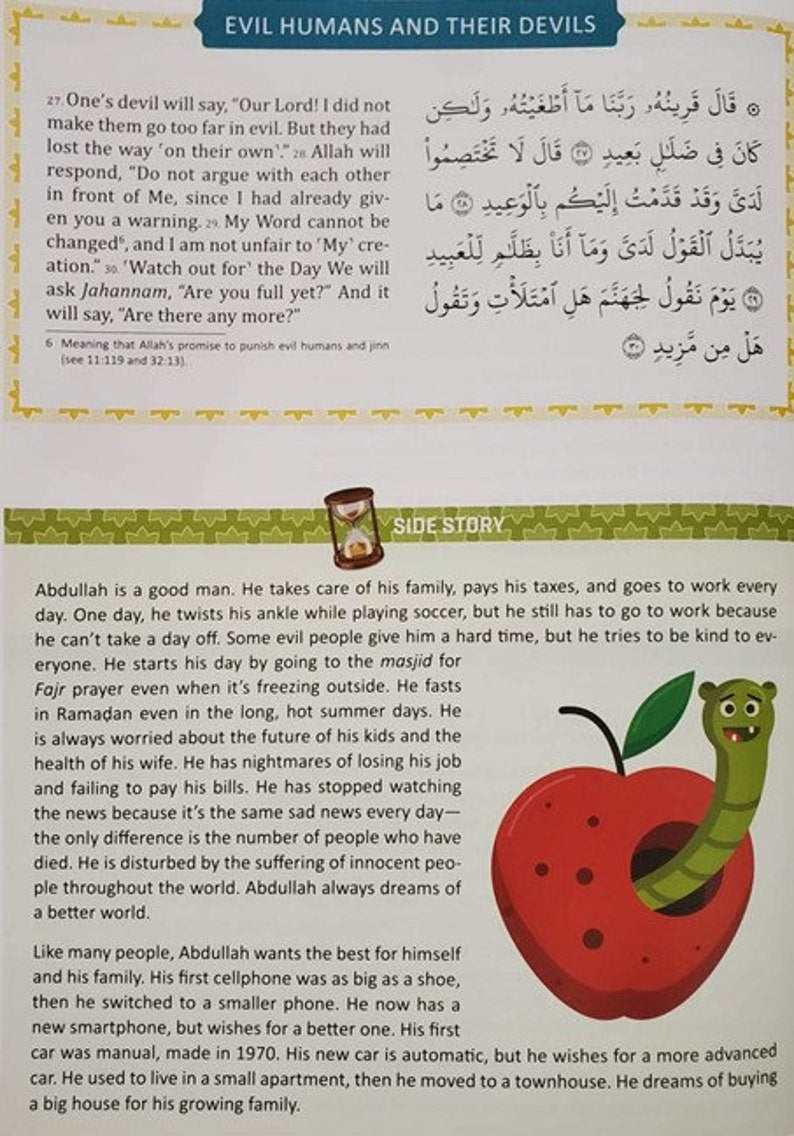 EVIL HUMANS AND THEIR DEVILS
27. One's devil will say, "Our Lord! I did not
make them go too far in evil. But they had
lost the way ˹on their own˺." 28. Allah will
respond, "Do not argue with each other
in front of Me, since I had already giv-
en you a warning. 29. My Word cannot be
changed⁶, and I am not unfair to ˹My˺ cre-
ation." 30. ˹Watch out for˺ the Day We will
ask Jahannam, "Are you full yet?" And it
will say, "Are there any more?"
6 Meaning that Allah's promise to punish evil humans and jinn
(see 11:119 and 32:13).
۞ قَالَ قَرِينُهُۥ رَبَّنَا مَآ أَطْغَيْتُهُۥ وَلَـٰكِن
كَانَ فِى ضَلَـٰلٍۭ بَعِيدٍ ٢٧ قَالَ لَا تَخْتَصِمُوا۟
لَدَىَّ وَقَدْ قَدَّمْتُ إِلَيْكُم بِٱلْوَعِيدِ ٢٨ مَا
يُبَدَّلُ ٱلْقَوْلُ لَدَىَّ وَمَآ أَنَا۠ بِظَلَّـٰمٍ لِّلْعَبِيدِ
٢٩ يَوْمَ نَقُولُ لِجَهَنَّمَ هَلِ ٱمْتَلَأْتِ وَتَقُولُ
هَلْ مِن مَّزِيدٍ ٣٠
SIDE STORY
Abdullah is a good man. He takes care of his family, pays his taxes, and goes to work every
day. One day, he twists his ankle while playing soccer, but he still has to go to work because
he can't take a day off. Some evil people give him a hard time, but he tries to be kind to ev-
eryone. He starts his day by going to the masjid for
Fajr prayer even when it's freezing outside. He fasts
in Ramaḍan even in the long, hot summer days. He
is always worried about the future of his kids and the
health of his wife. He has nightmares of losing his job
and failing to pay his bills. He has stopped watching
the news because it's the same sad news every day—
the only difference is the number of people who have
died. He is disturbed by the suffering of innocent peo-
ple throughout the world. Abdullah always dreams of
a better world.
Like many people, Abdullah wants the best for himself
and his family. His first cellphone was as big as a shoe,
then he switched to a smaller phone. He now has a
new smartphone, but wishes for a better one. His first
car was manual, made in 1970. His new car is automatic, but he wishes for a more advanced
car. He used to live in a small apartment, then he moved to a townhouse. He dreams of buying
a big house for his growing family.